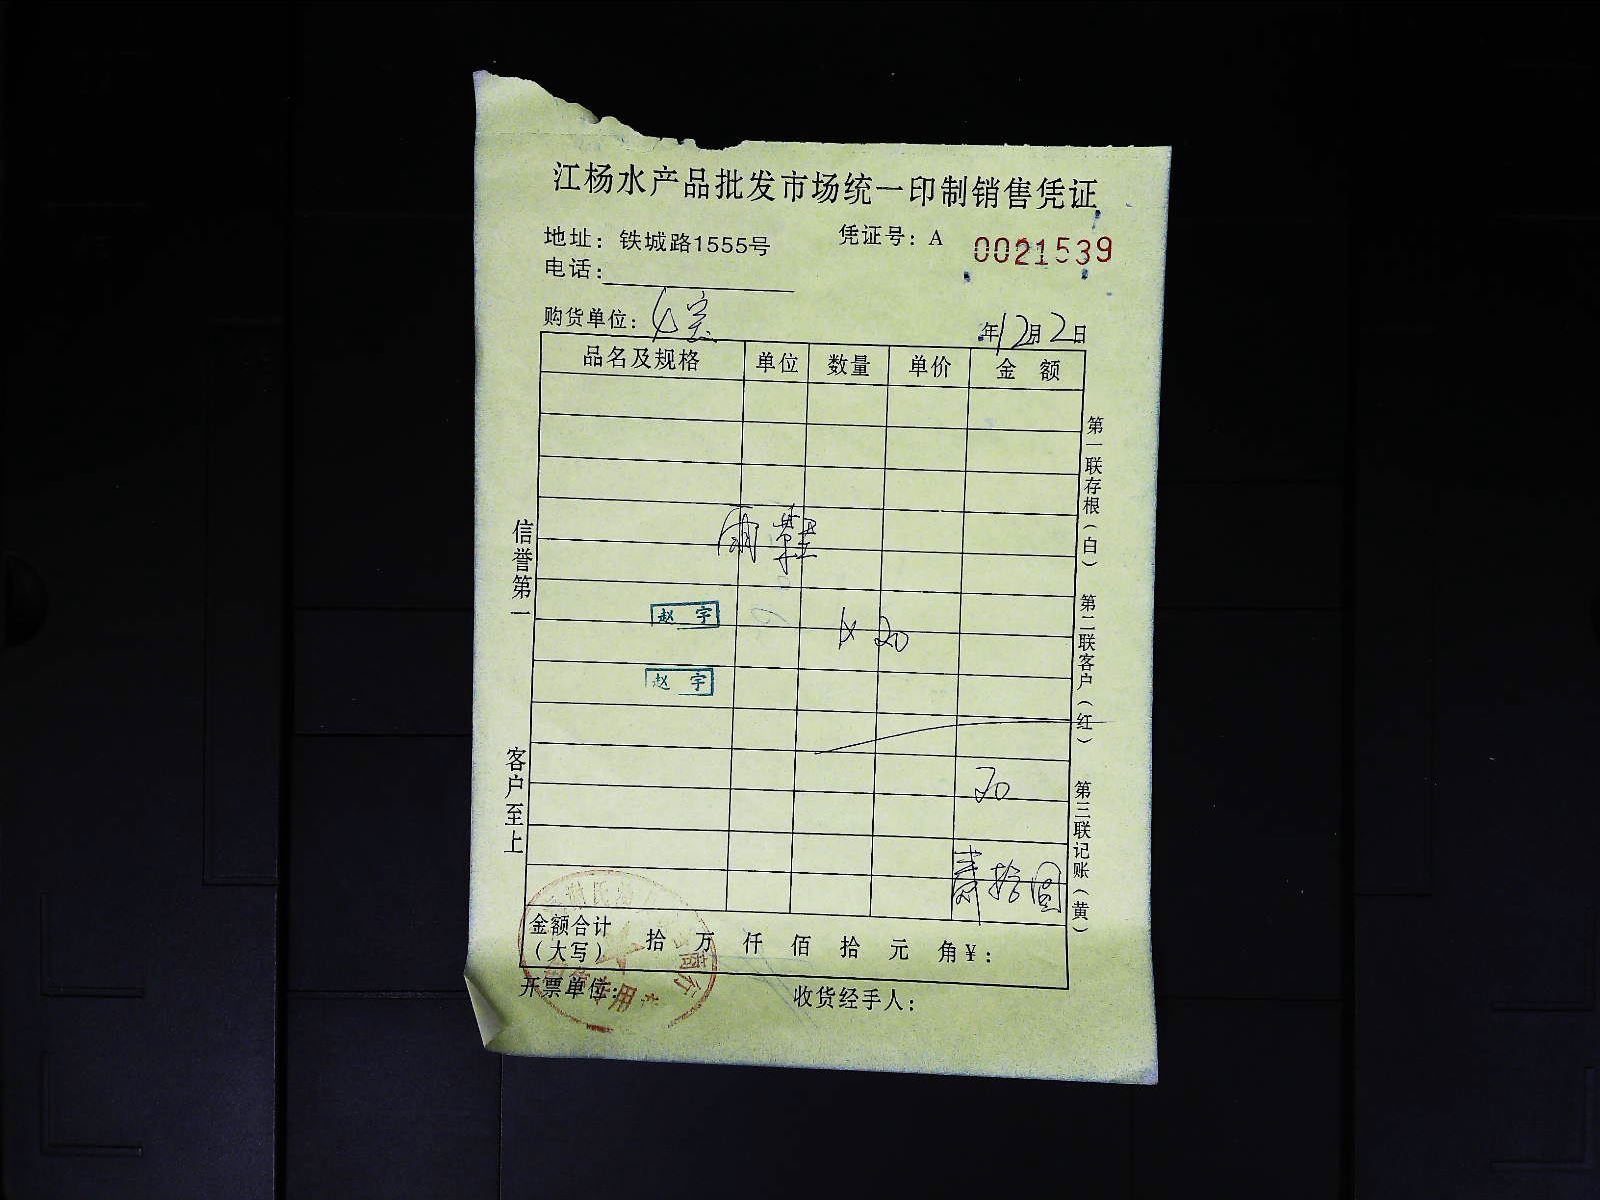 江杨水产品批发市场统一印制销售凭证
地址：铁城路1555号 凭证号：A 0021539
电话：
购货单位：
年12月2日
品名及规格 单位 数量 单价 金 额
雨鞋
赵 宇
20
赵 宇
20
拾圆
金额合计（大写） 拾 万 仟 佰 拾 元 角 ¥：
开票单位： 收货经手人：
信誉第一
客户至上
第一联存根（白） 第二联客户（红） 第三联记账（黄）